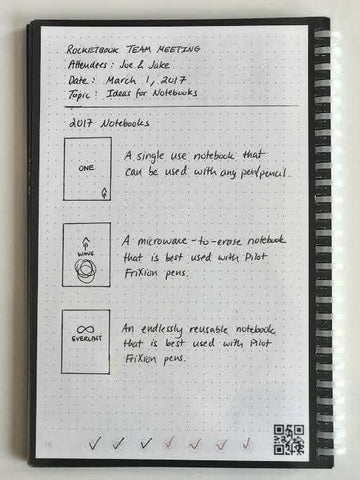 ROCKETBOOK TEAM MEETING
Attendees: Joe & Jake
Date: March 1, 2017
Topic: Ideas for Notebooks
2017 Notebooks
ONE
A single use notebook that
can be used with any pen/pencil.
WAVE
A microwave-to-erase notebook
that is best used with Pilot
FriXion pens.
EVERLAST
An endlessly reusable notebook
that is best used with Pilot
FriXion pens.